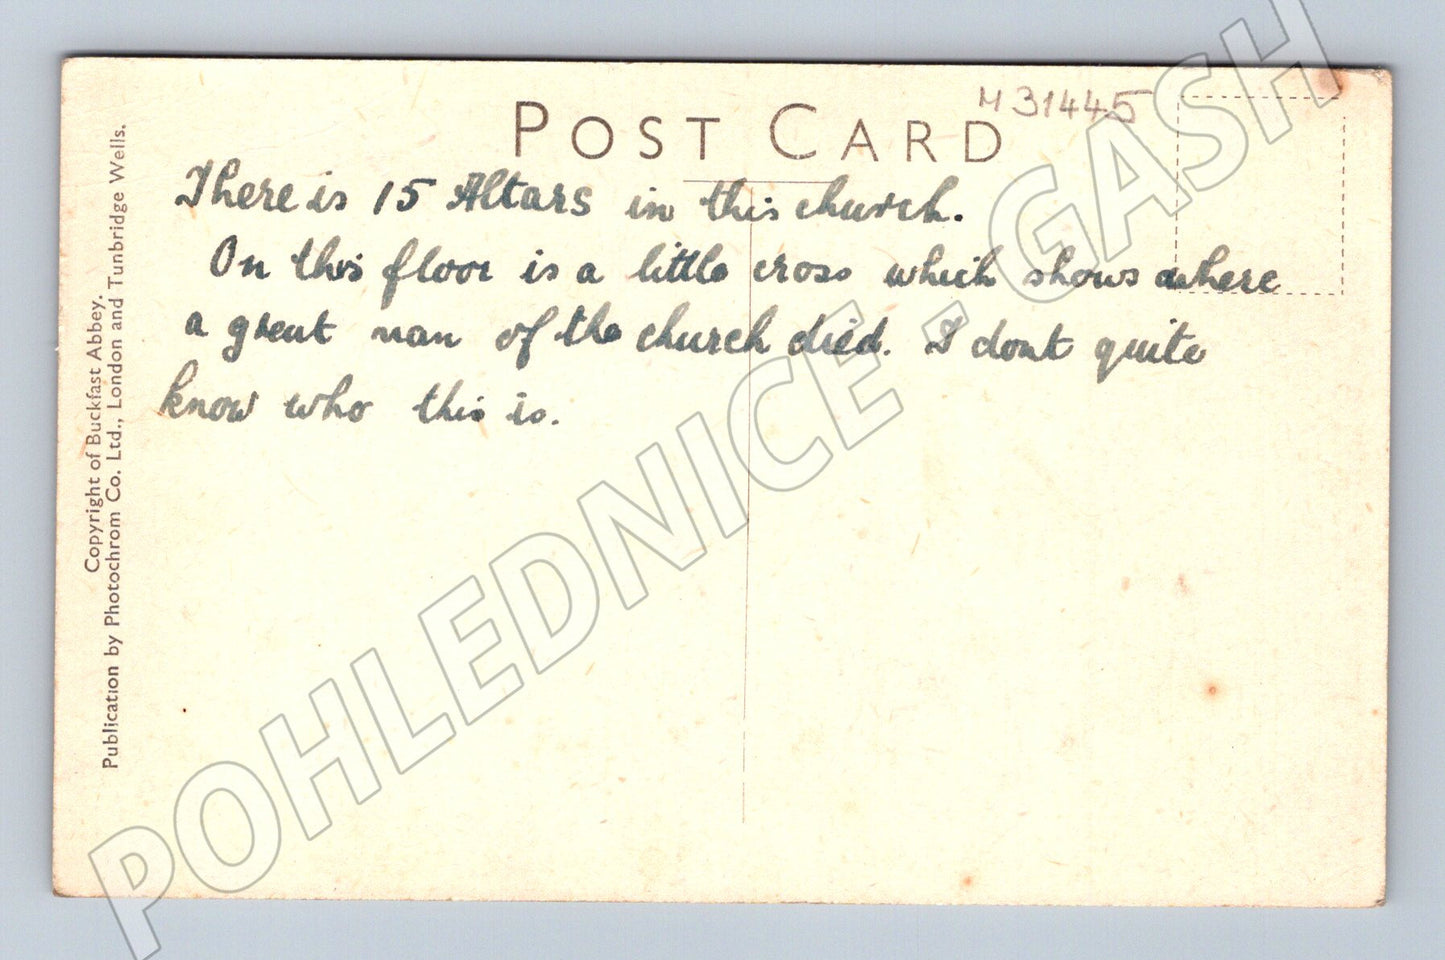 POST CARD
M31445
There is 15 Altars in this church.
On this floor is a little cross which shows where
a great man of the church died. I dont quite
know who this is.
Copyright of Buckfast Abbey.
Publication by Photochrom Co. Ltd., London and Tunbridge Wells.
POHLEDNICE . GASH